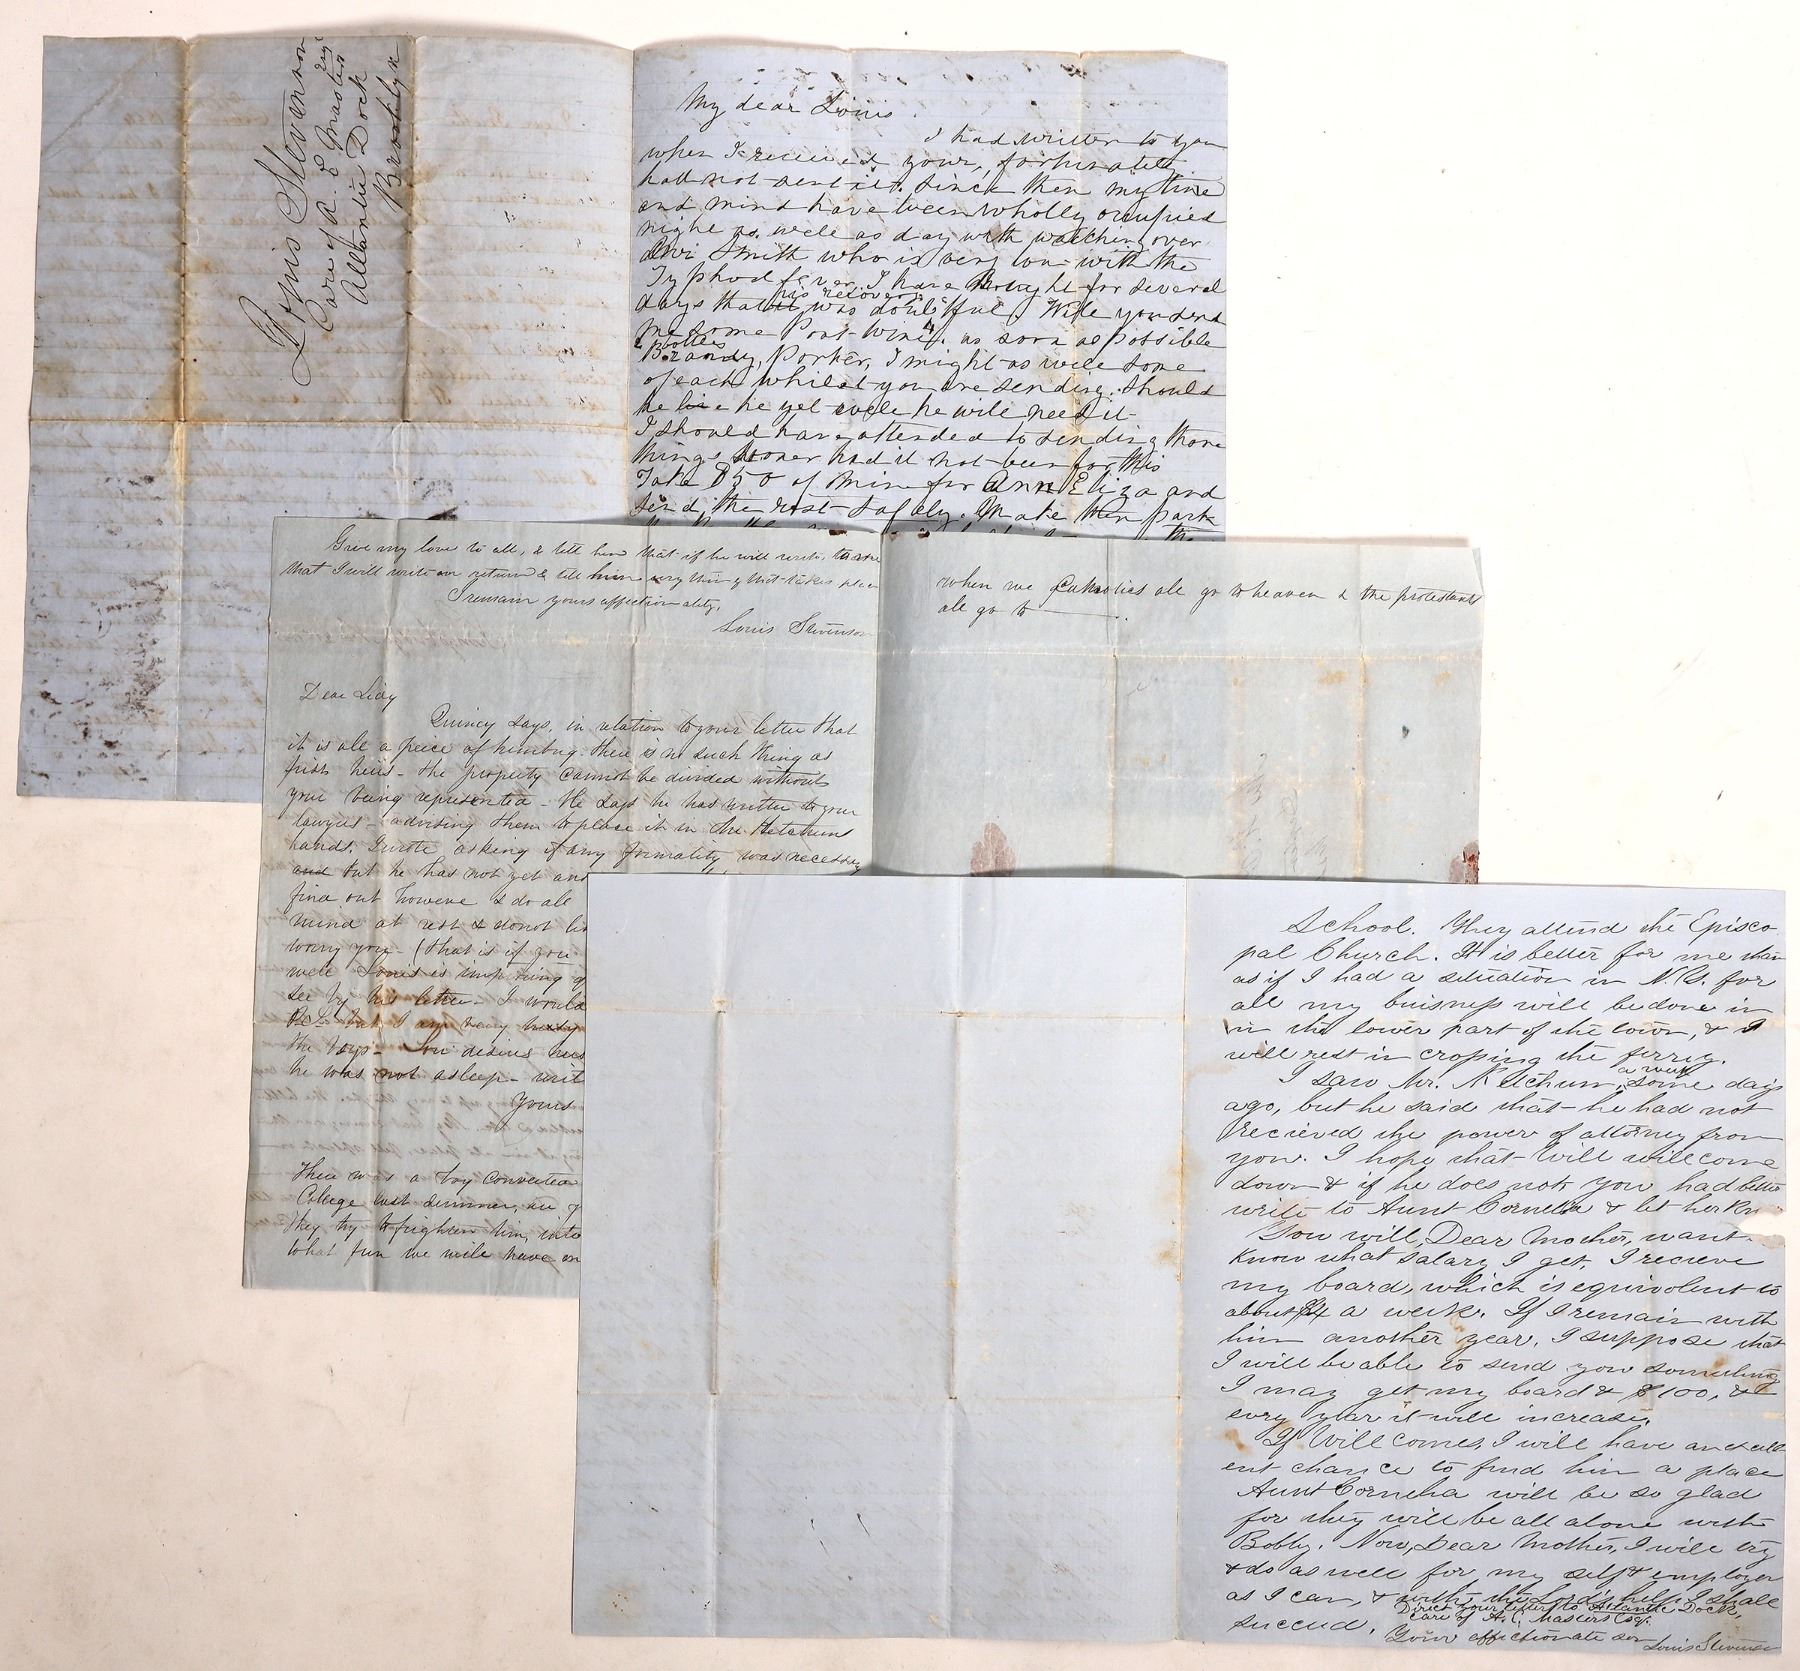 Louis Stevenson
Care of R. L. Masters esqr
Atlantic Dock
Brooklyn
My dear Louis.
I had written to you
when I received your, fortunately
had not sent it. Since then my time
and mind have been wholly ocupied
night as well as day with watching over
Smith who is very low with the
Typhod fever. I have thought for several
days that his recovery was doubtful. Will you send
me some Port wine 4 as soon as possible
2 bottles Brandy, Porter, I might as well some
of each whilst you are sending. Should
he live he yet well he will need it
I should have attended to sending those
things sooner had it not been for this
Take $50 of mine for Ann Eliza and
send the rest safely. Make them
Give my love to all, & tell him that if he will write to me
that I will write on return & tell him every thing that takes place
I remain yours affectionately,
Louis Stevenson
Dear Lidy
Quincy says, in relation to your letter that
it is all a peice of humbug. there is no such thing as
heirs - the property cannot be divided without
your being represented - He says he has written to your
lawyers - advising them to place it in the Ketchums
hands. I wrote asking if any formality was necessary
and but he has not yet ans
find out however & do all
mind at rest & do not
worry you - (that is if you
well Louis is improving
see by his letter - I would
but I am very
the boys - desires
he was not asleep - writ
Yours
There was a boy converted
College last summer,
they try to frighten him, into
what fun we will have
when we Catholics all go to heaven & the protestants
all go to ———.
School. They attend the Episco-
pal Church. It is better for me than
as if I had a situation in N.Y. for
all my buisness will be done in
in the lower part of the town, & I
will rest in crossing the ferry.
I saw Mr. Ketchum, a week some days
ago, but he said that he had not
recieved the power of attorney from
you. I hope that Will will come
down & if he does not, you had better
write to Aunt Cornelia & let her kn
You will, Dear Mother, want
know what salary I get. I recieve
my board, which is equivolent to
about $4 a week. If I remain with
him another year, I suppose that
I will be able to send you something
I may get my board & $100, &
every year it will increase.
If Will comes, I will have an excell-
ent chance to find him a place
Aunt Cornelia will be so glad
for they will be all alone with
Bobby. Now, Dear Mother, I will try
& do as well for my self & employer
as I can, & with the Lord's help I shall
succeed.
Direct your letters to Atlantic Dock,
Care of A. C. Masters Esq.
Your affectionate son
Louis Stevenson